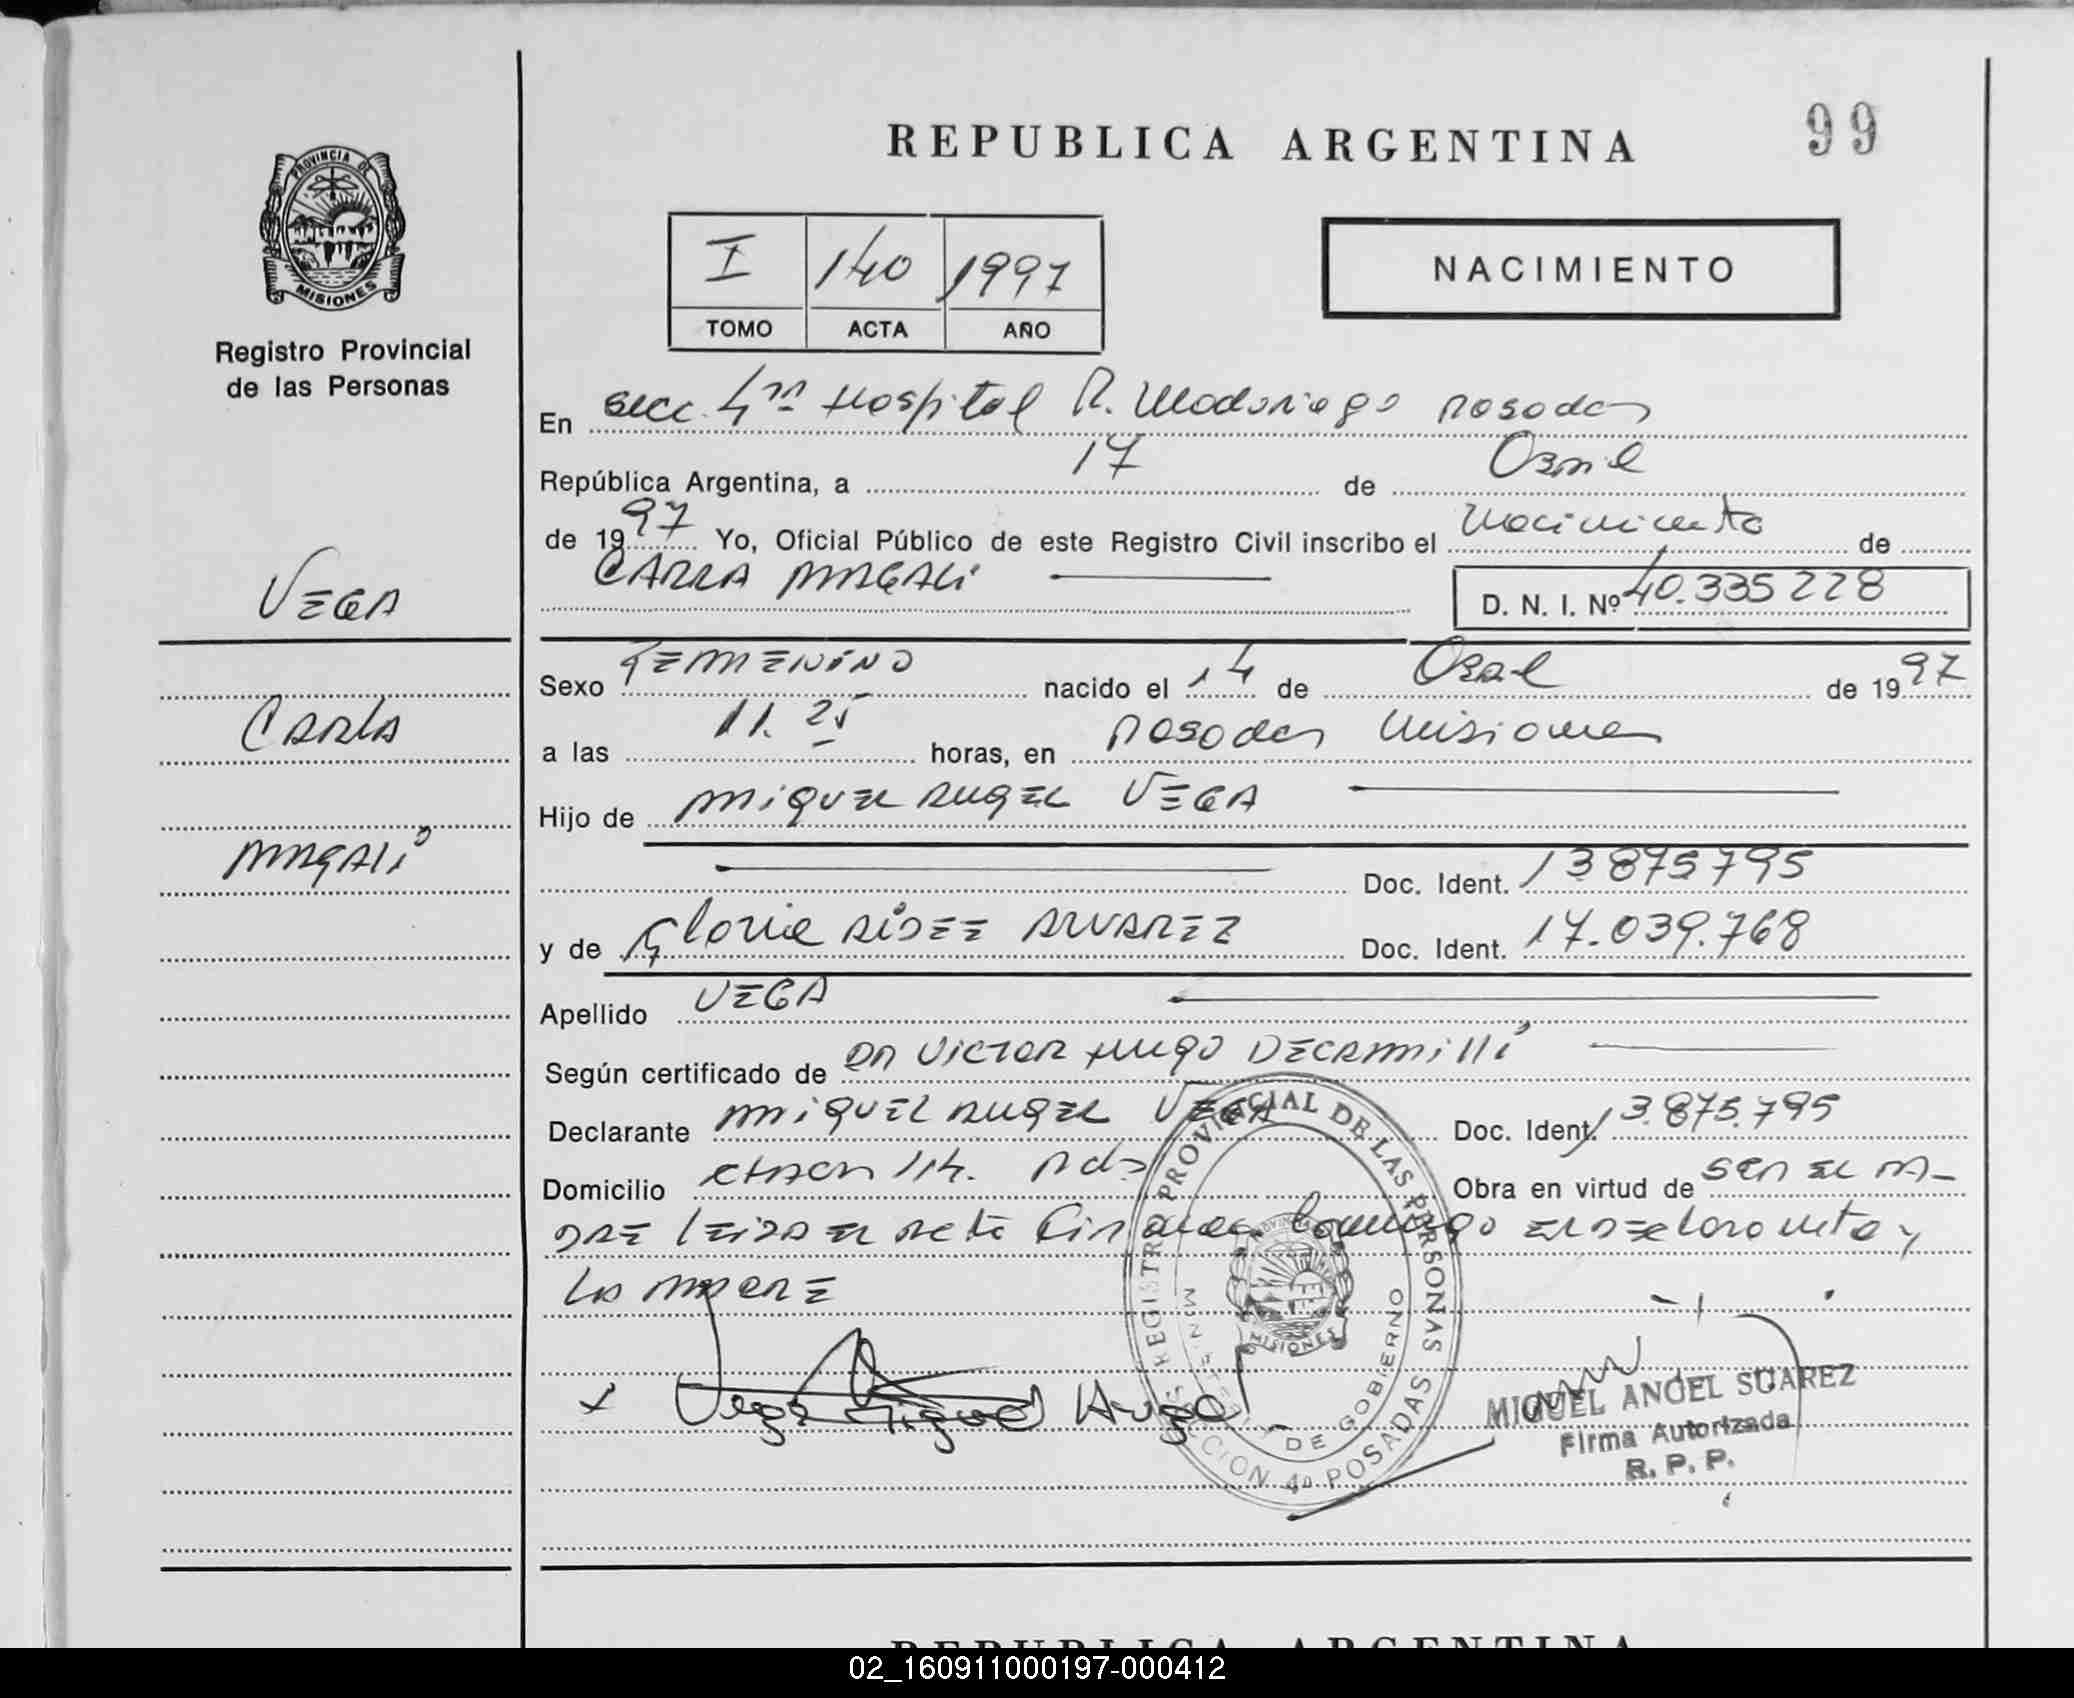 REPUBLICA ARGENTINA 99
PROVINCIA DE
MISIONES
Registro Provincial
de las Personas
I 140 1997
TOMO ACTA AÑO
NACIMIENTO
En secc. 4ta Hospital R. Madariaga Posadas
República Argentina, a 17 de Abril
de 1997 Yo, Oficial Público de este Registro Civil inscribo el Nacimiento de
CARLA MAGALI
D. N. I. Nº 40.335228
VEGA
Carla
MAGALI
Sexo FEMENINO nacido el 14 de Abril de 1997
a las 11.25 horas, en Posadas Misiones
Hijo de MIGUEL ANGEL VEGA
Doc. Ident. 13875795
y de Gloria AIDEE ALVAREZ Doc. Ident. 17.039.768
Apellido VEGA
Según certificado de DR VICTOR HUGO DECAMILLI
Declarante MIGUEL ANGEL VEGA Doc. Ident. 13.875.795
Domicilio CHACRA 114. Pdas Obra en virtud de SER EL PA-
DRE LEIDA EL ACTA Firman conmigo EL DECLARANTE y
LA MADRE
REGISTRO PROVINCIAL DE LAS PERSONAS
MINISTERIO DE GOBIERNO
SECCION 4ª POSADAS
PROVINCIA
MISIONES
x Vega Miguel Angel
MIGUEL ANGEL SUAREZ
Firma Autorizada
R. P. P.
REPUBLICA ARGENTINA
02_160911000197-000412